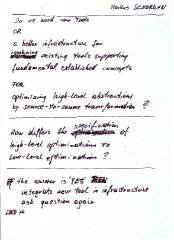 Markus SCHORDAN
Do we need new tools
OR
a better infrastructure for
combining existing tools supporting
fundamental established concepts
FOR
optimizing high-level abstractions
by source-to-source transformation ?
How differs the specification of
high-level optimizations to
low-level optimizations ?
IF the answer is 'YES' THEN
integrate new tool in infrastructure
ask question again